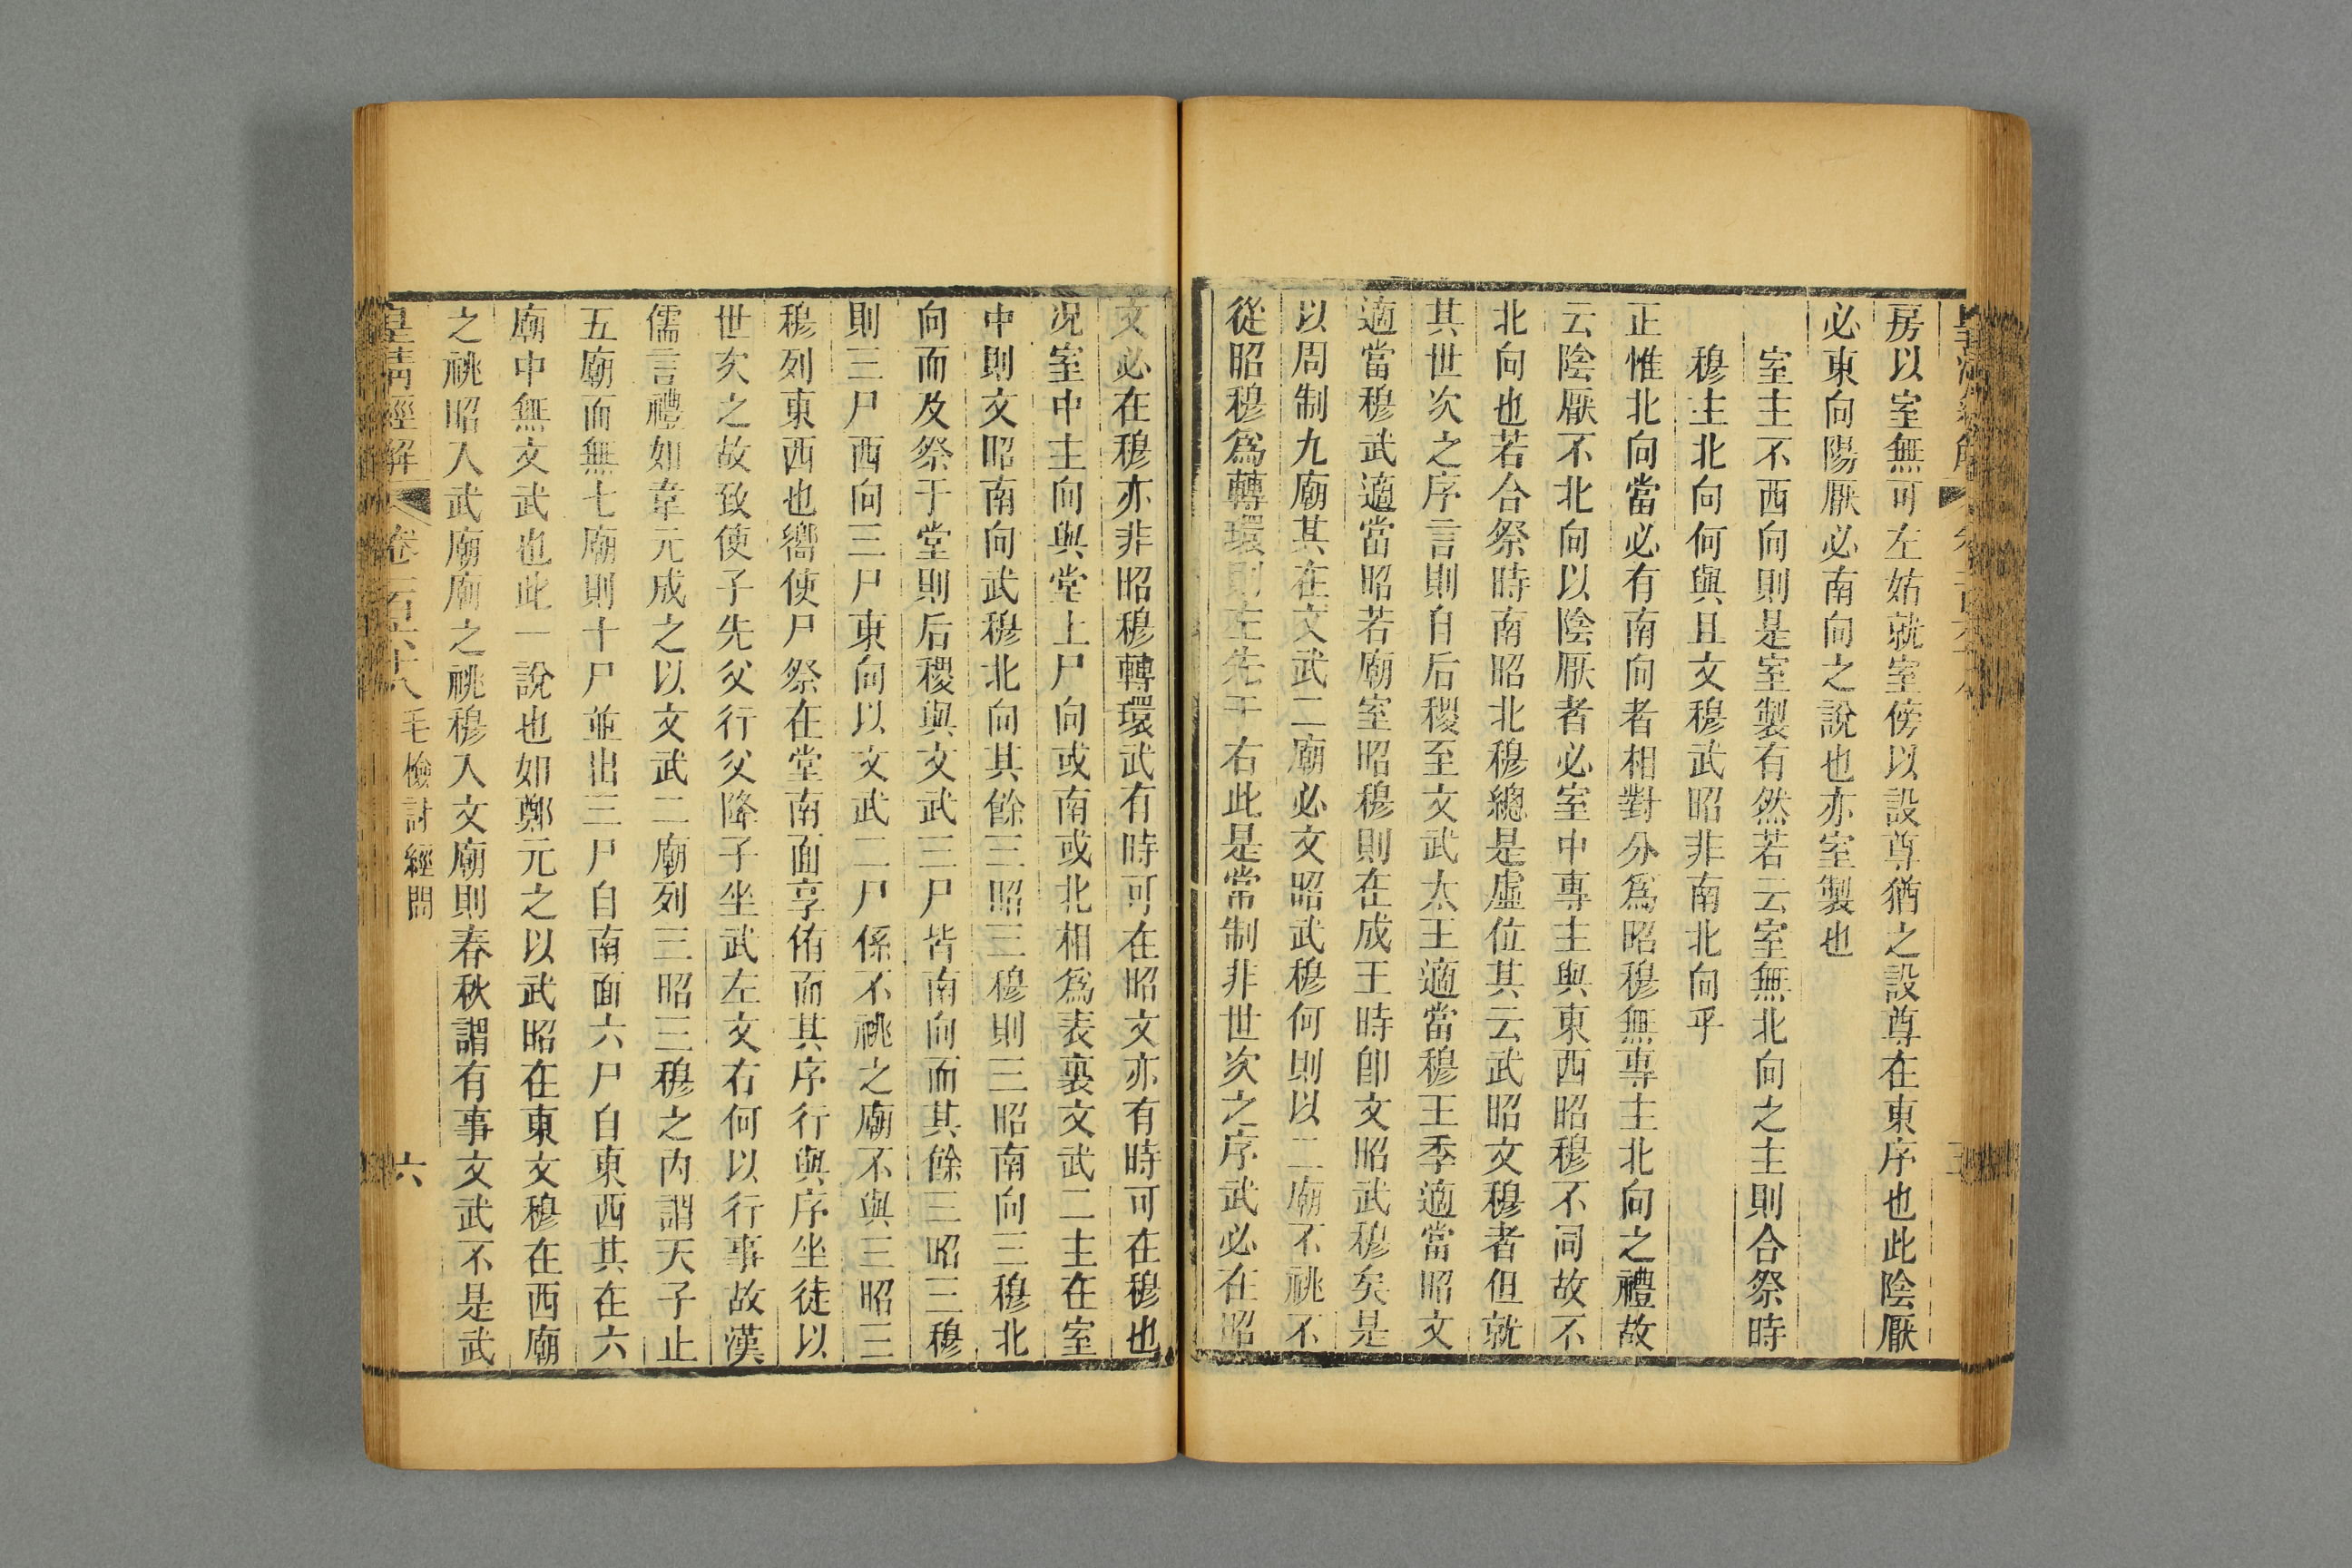 房以室無可左姑就室傍以設尊猶之設尊在東序也此陰厭
必東向陽厭必南向之說也亦室製也
室主不西向則是室製有然若云室無北向之主則合祭時
穆主北向何與且文穆武昭非南北向乎
正惟北向當必有南向者相對分爲昭穆無專主北向之禮故
云陰厭不北向以陰厭者必室中專主與東西昭穆不同故不
北向也若合祭時南昭北穆總是虛位其云武昭文穆者但就
其世次之序言則自后稷至文武太王適當穆王季適當昭文
適當穆武適當昭若廟室昭穆則在成王時卽文昭武穆矣是
以周制九廟其在文武二廟必文昭武穆何則以二廟不祧不
從昭穆爲轉環則左先王右此是常制非世次之序武必在昭
文必在穆亦非昭穆轉環武有時可在昭文亦有時可在穆也
况室中主向與堂上尸向或南或北相爲表裏文武二主在室
中則文昭南向武穆北向其餘三昭三穆則三昭南向三穆北
向而及祭于堂則后稷與文武三尸皆南向而其餘三昭三穆
則三尸西向三尸東向以文武二尸係不祧之廟不與三昭三
穆列東西也嚮使尸祭在堂南面享侑而其序行與序坐徒以
世次之故致使子先父行父降子坐武左文右何以行事故漢
儒言禮如韋元成之以文武二廟列三昭三穆之內謂天子止
五廟而無七廟則十尸並出三尸自南面六尸自東西其在六
廟中無文武也此一說也如鄭元之以武昭在東文穆在西廟
之祧昭入武廟廟之祧穆入文廟則春秋謂有事文武不是武
皇淸經解 卷一百六十八 毛檢討經問 六